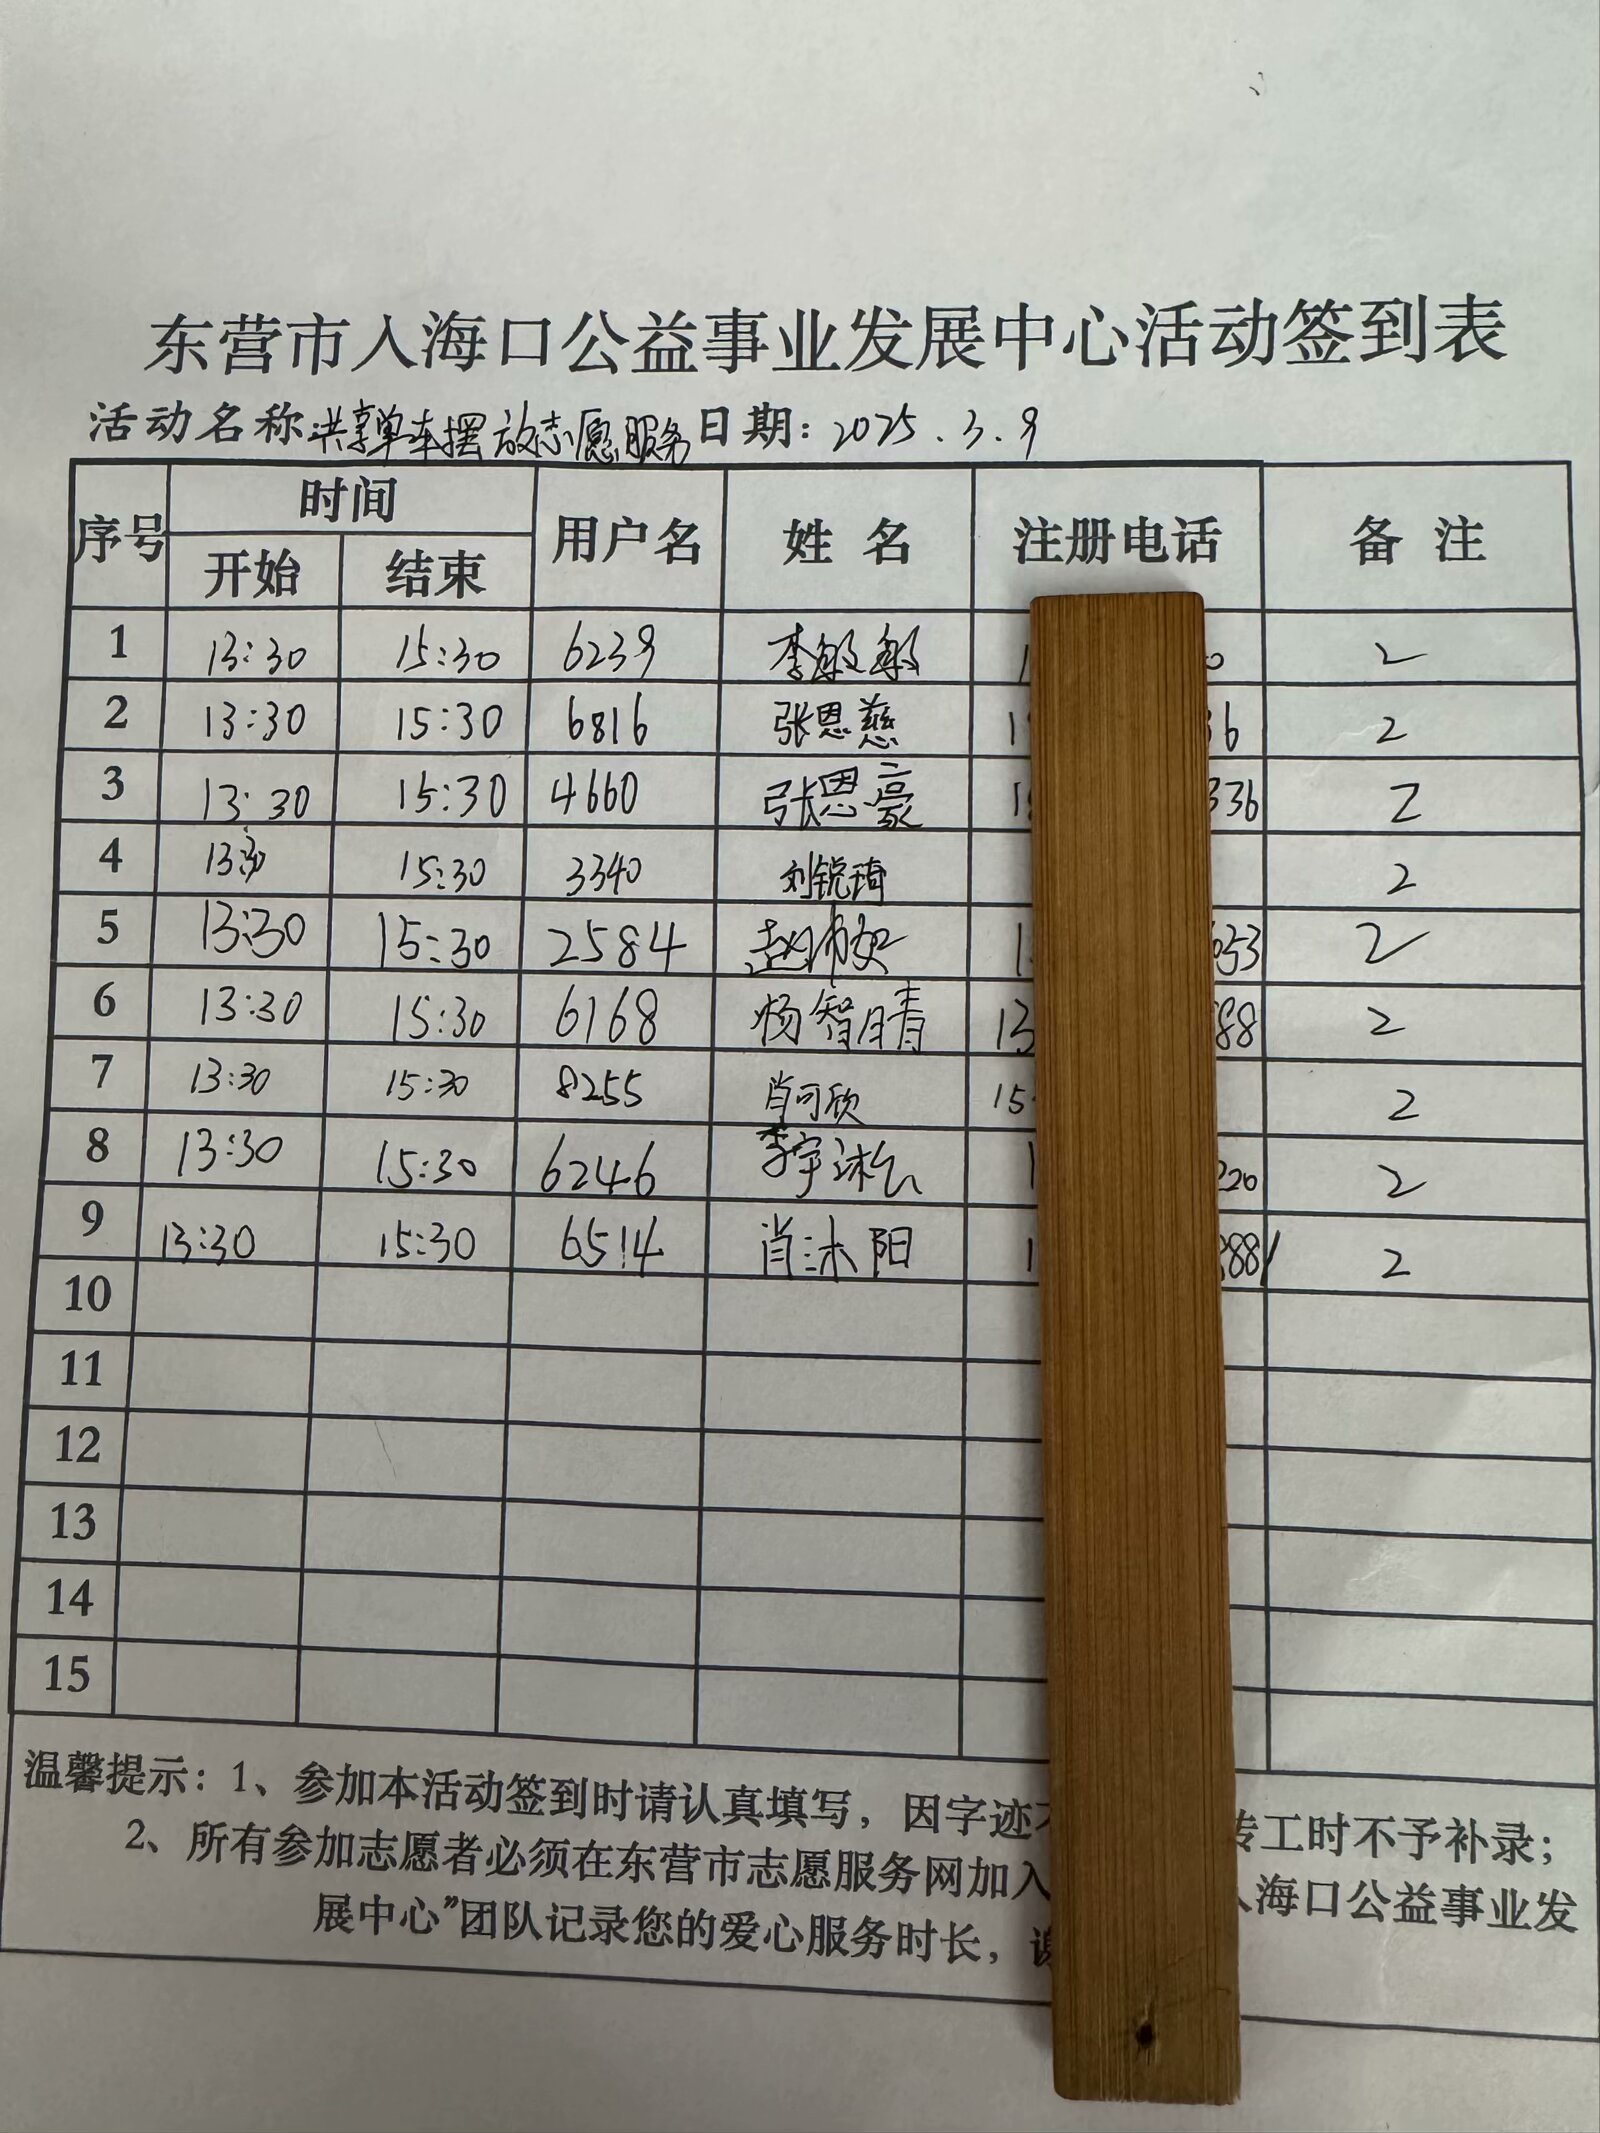 东营市入海口公益事业发展中心活动签到表
活动名称 共享单车摆放志愿服务 日期：2025.3.9
序号 时间 用户名 姓名 注册电话 备注
开始 结束
1 13:30 15:30 6239 李敏敏 2
2 13:30 15:30 6816 张恩慈 36 2
3 13:30 15:30 4660 张恩豪 336 2
4 13:30 15:30 3340 刘锐琦 2
5 13:30 15:30 2584 653 2
6 13:30 15:30 6168 杨智晴 13 88 2
7 13:30 15:30 8255 肖可欣 15 2
8 13:30 15:30 6246 李宇 220 2
9 13:30 15:30 6514 肖沐阳 288 2
10
11
12
13
14
15
温馨提示：1、参加本活动签到时请认真填写，因字迹不 转工时不予补录；
2、所有参加志愿者必须在东营市志愿服务网加入 入海口公益事业发
展中心”团队记录您的爱心服务时长，